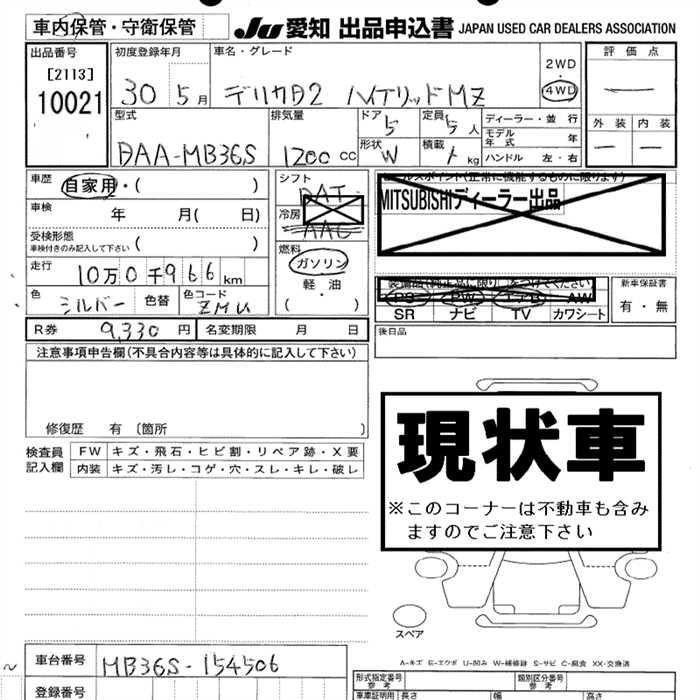 車内保管・守衛保管
JU 愛知 出品申込書 JAPAN USED CAR DEALERS ASSOCIATION
出品番号
[2113]
10021
初度登録年月
30 5月
車名・グレード
デリカD2 ハイブリッドMZ
2WD
・
4WD
評価点
—
外装 内装
— —
型式
DAA-MB36S
排気量
1200 cc
ドア
5
定員
5 人
形状
W
積載
kg
ディーラー・並行
モデル年式 年
ハンドル 左・右
車歴
自家用・( )
車検 年 月( 日)
受検形態
車検付きのみ記入して下さい ( )
走行
10万0千966km
色
シルバー
色替
色コード
ZMU
シフト
DAT
冷房
AAC
燃料
ガソリン
・
軽・油
( )
セールスポイント(正常に機能するものに限ります)
MITSUBISHIディーラー出品
装備品(純正品に限り)○をつけてください
PS PW エアB AW
SR ナビ TV カワシート
新車保証書
有・無
後日品
R券 9,330円 名変期限 月 日
注意事項申告欄(不具合内容等は具体的に記入して下さい)
修復歴 有 〔箇所 〕
検査員記入欄
FW キズ・飛石・ヒビ割・リペア跡・X要
内装 キズ・汚レ・コゲ・穴・スレ・キレ・破レ
現状車
※このコーナーは不動車も含み
ますのでご注意下さい
スペア
A-キズ E-エクボ U-凹み W-補修跡 S-サビ C-腐食 XX-交換済
車台番号
MB36S-154506
登録番号
形式指定番号
参考
類別区分番号
参考
車庫証明用 長さ 幅 高さ